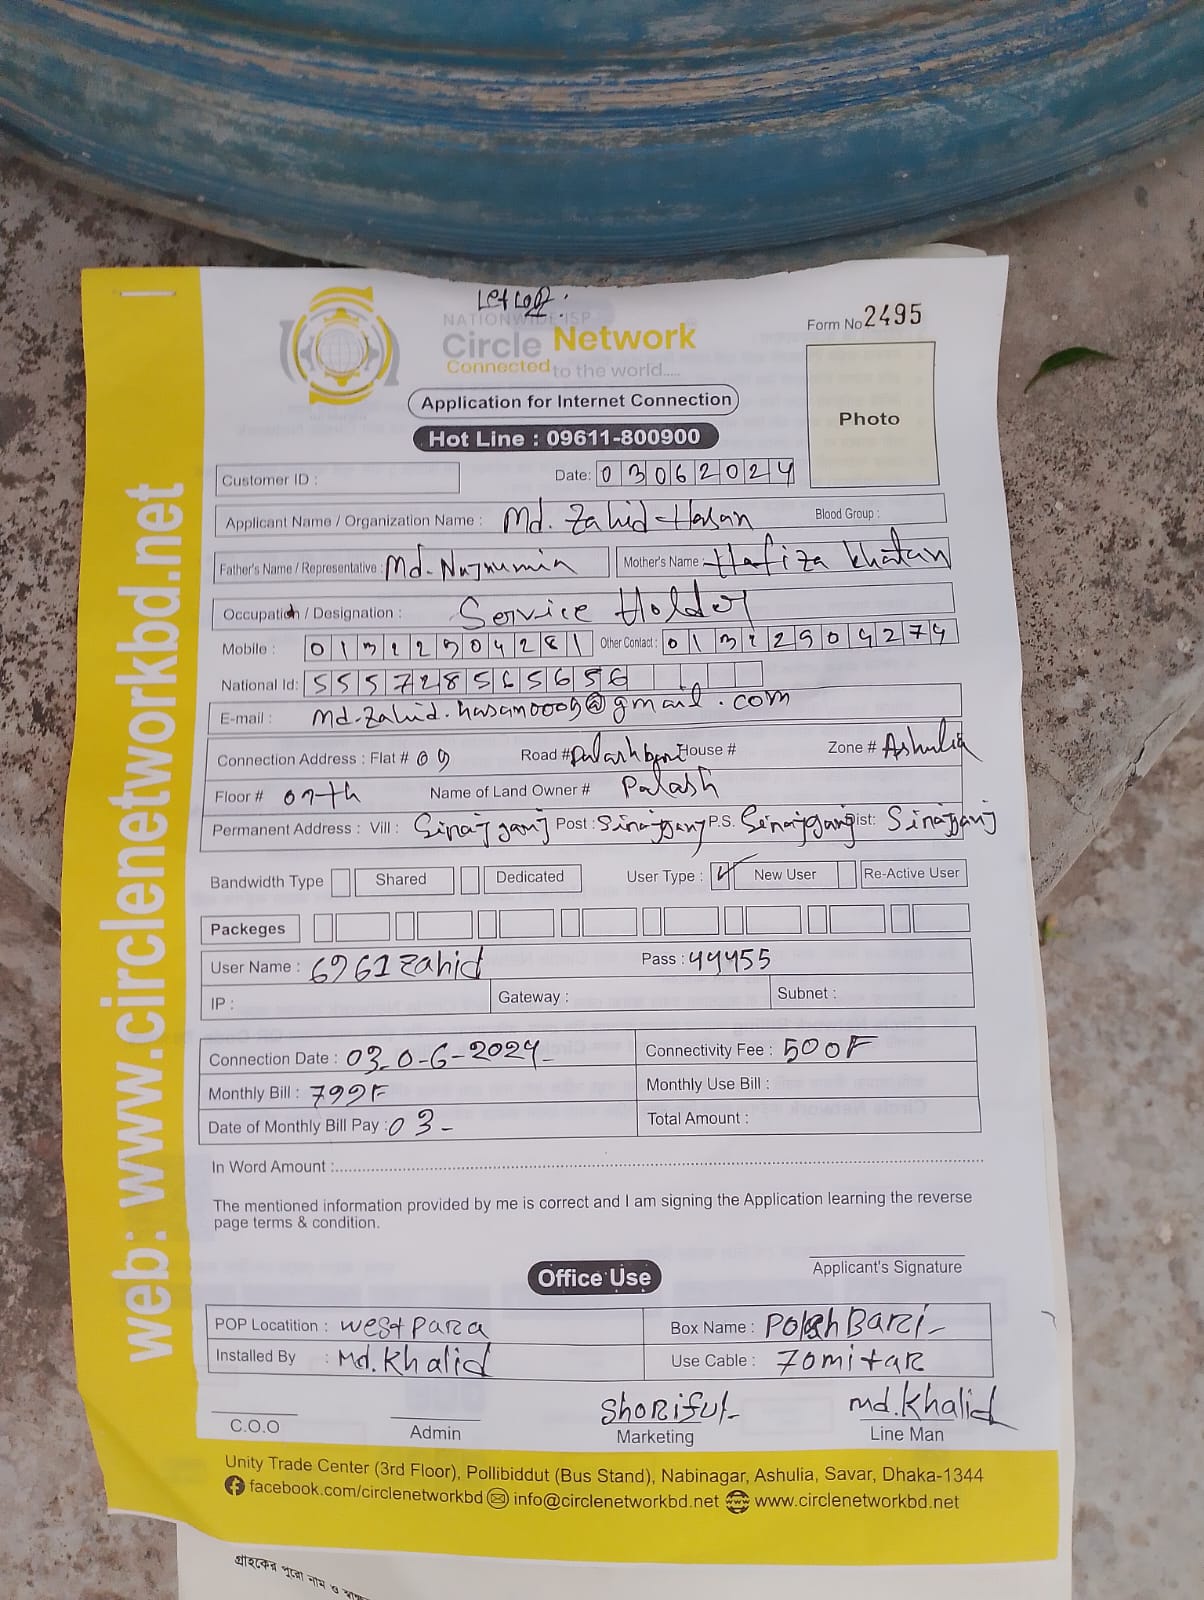 NATIONWIDE ISP
Circle Network
Connected to the world.....
Form No 2495
Photo
Application for Internet Connection
Hot Line : 09611-800900
Customer ID :
Date: 03062024
Applicant Name / Organization Name : Md. Zahid Hasan Blood Group :
Father's Name / Representative : Md. Nujnumin Mother's Name : Hafiza Khatun
Occupation / Designation : Service Holder
Mobile : 01312904281 Other Contact : 01312904274
National Id: 555728565656
E-mail : md.zahid.hasan0009@gmail.com
Connection Address : Flat # 09 Road # Palashbari House # Zone # Ashulia
Floor # 07th Name of Land Owner # Palash
Permanent Address : Vill : Sirajganj Post : Sirajganj P.S. Sirajganj Dist: Sirajganj
Bandwidth Type Shared Dedicated User Type : ✓ New User Re-Active User
Packeges
User Name : 6961zahid Pass : 44455
IP : Gateway : Subnet :
Connection Date : 03-0-6-2024- Connectivity Fee : 500F
Monthly Bill : 799F Monthly Use Bill :
Date of Monthly Bill Pay : 03- Total Amount :
In Word Amount :
The mentioned information provided by me is correct and I am signing the Application learning the reverse
page terms & condition.
Applicant's Signature
Office Use
POP Locatition : West Para Box Name : Polash Bari-
Installed By : Md. Khalid Use Cable : 70mitar
Shoriful- md. Khalid
C.O.O Admin Marketing Line Man
Unity Trade Center (3rd Floor), Pollibiddut (Bus Stand), Nabinagar, Ashulia, Savar, Dhaka-1344
facebook.com/circlenetworkbd info@circlenetworkbd.net www.circlenetworkbd.net
web: www.circlenetworkbd.net
গ্রাহকের পুরো নাম ও